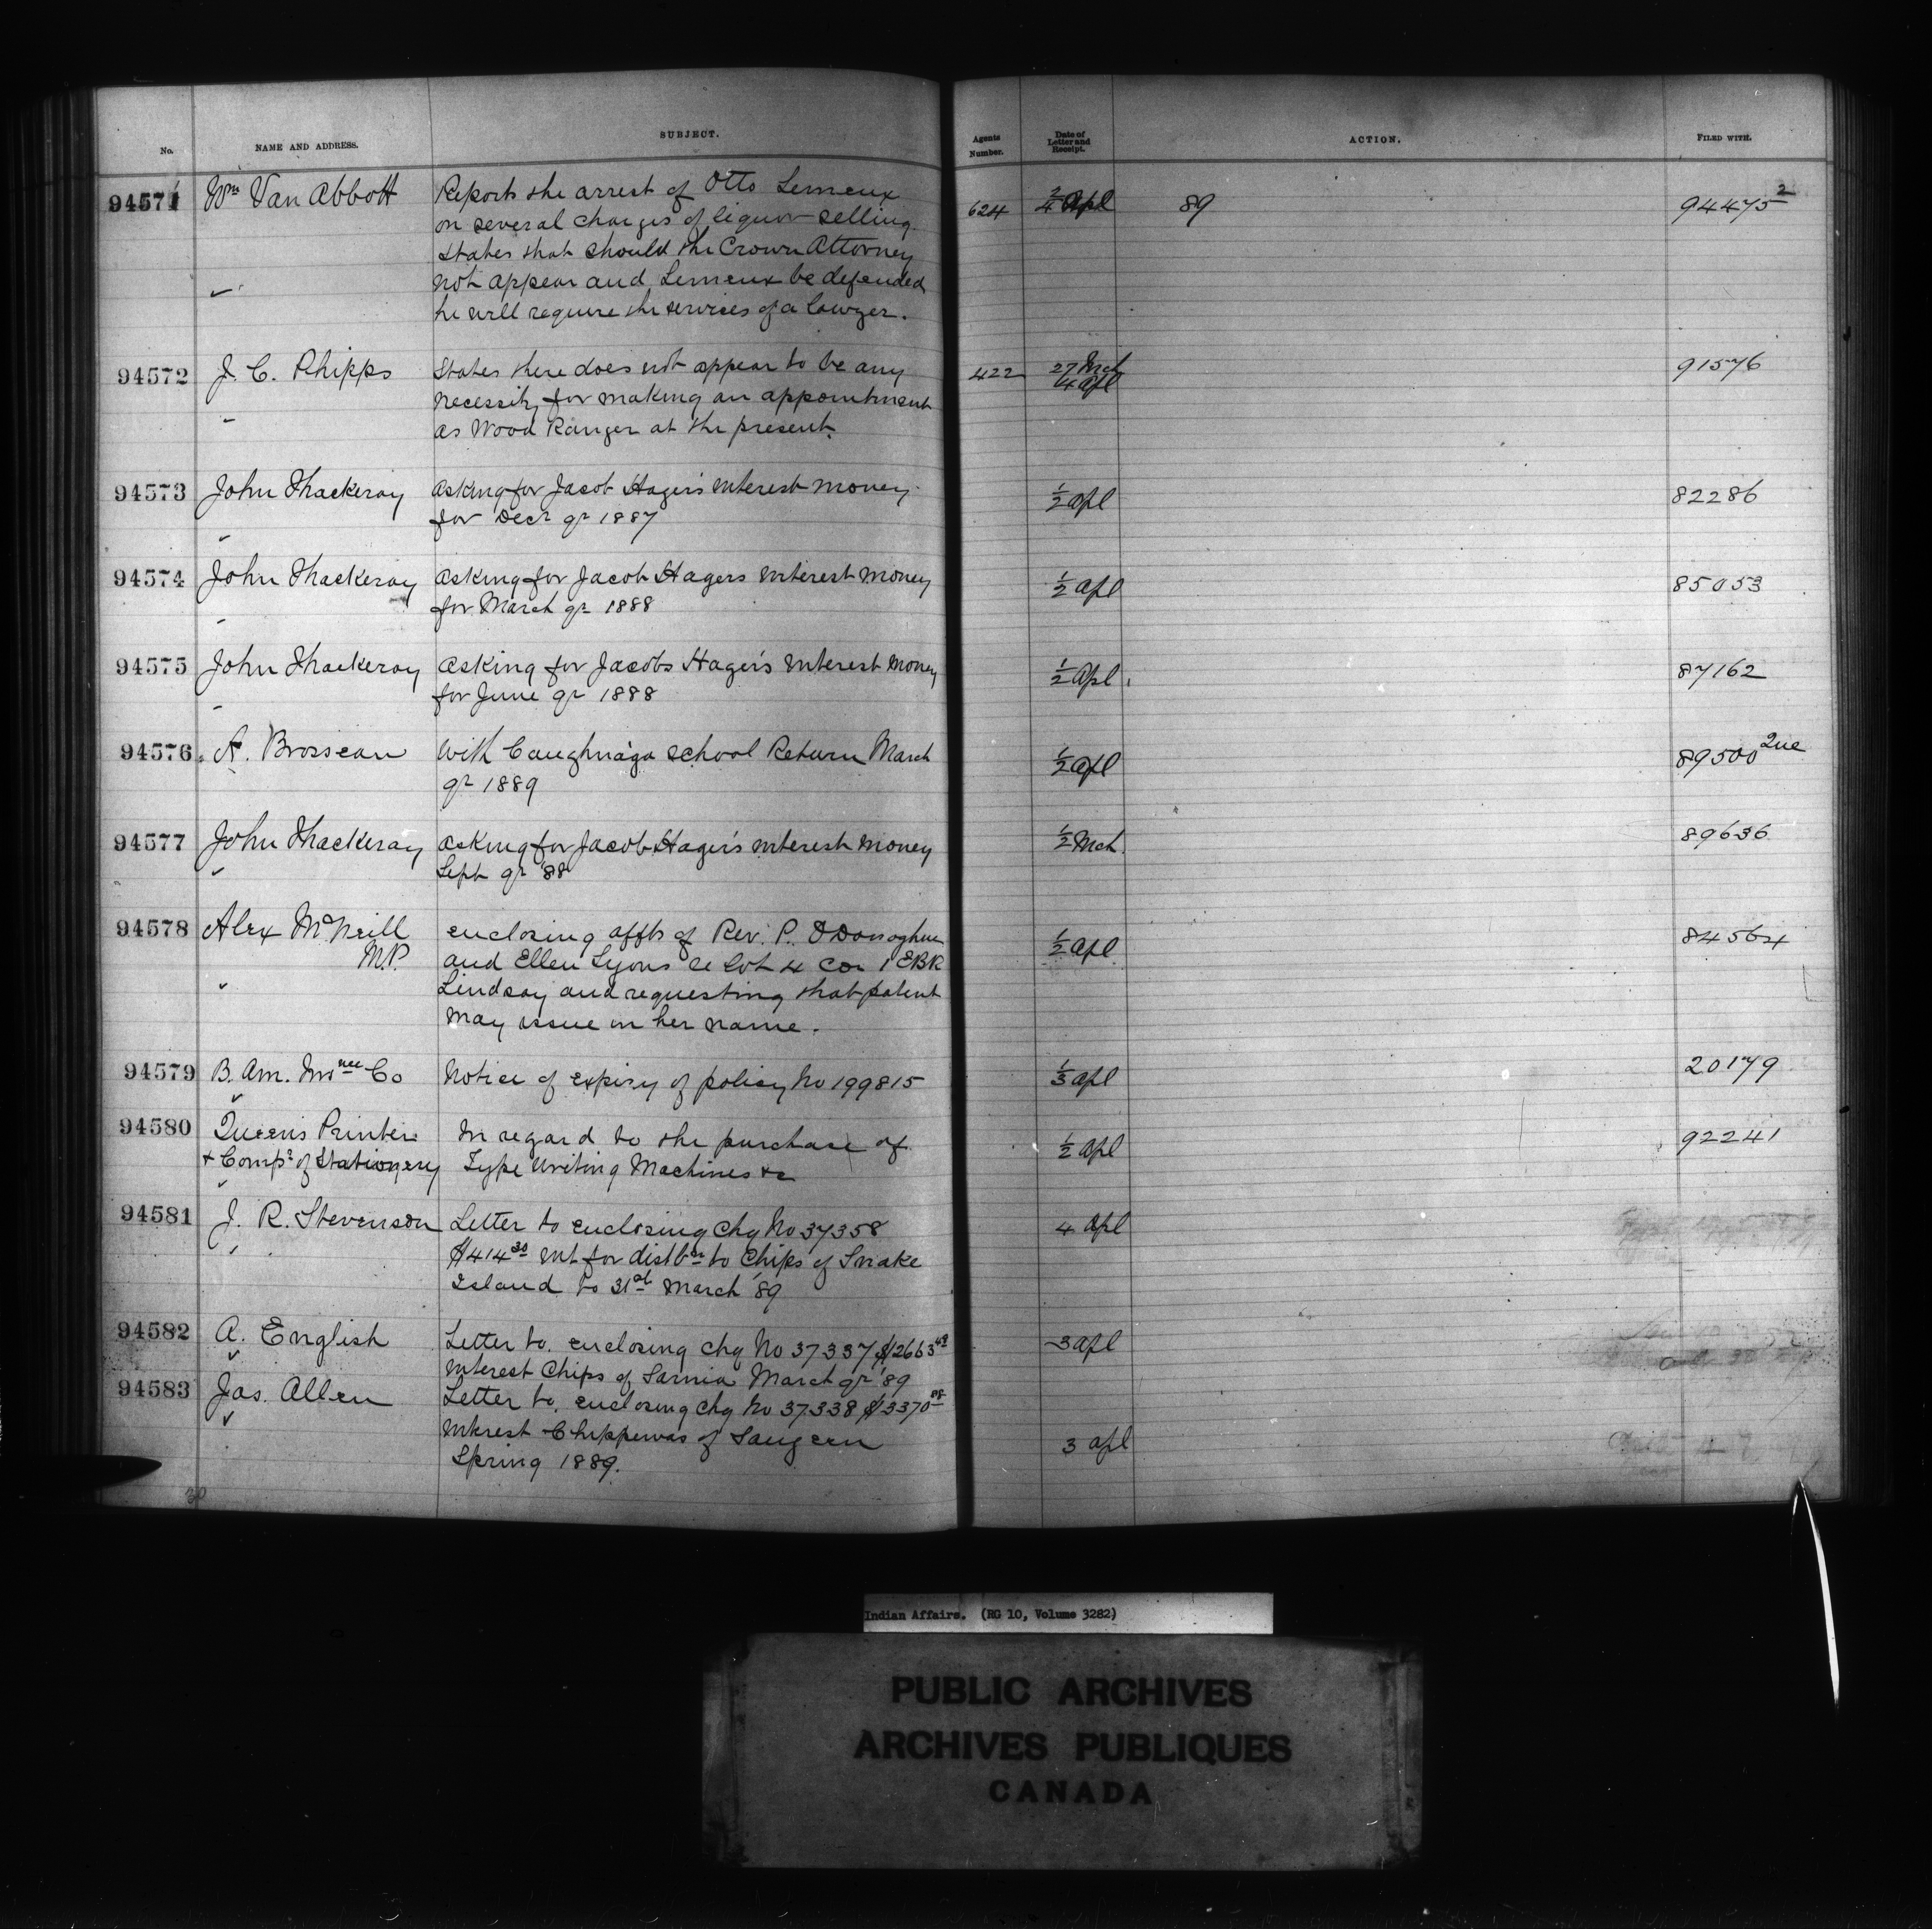 No.
NAME AND ADDRESS.
SUBJECT.
Agents Number.
Date of Letter and Receipt.
ACTION.
FILED WITH.
94571 Wm Van Abbott Reports the arrest of Otto Lemeux 624 2/4 Apl 89 94475 2
on several charges of liquor selling.
States that should the Crown Attorney
not appear and Lemeux be defended
he will require the services of a lawyer.
94572 J. C. Phipps States there does not appear to be any 422 27 Mch 4 Apl 91576
necessity for making an appointment
as Wood Ranger at the present.
94573 John Thackeray Asking for Jacob Hager's interest money 1/2 Apl 82286
for Decr qr 1887
94574 John Thackeray Asking for Jacob Hagers interest money 1/2 Apl 85053
for March qr 1888
94575 John Thackeray Asking for Jacobs Hager's interest money 1/2 Apl 87162
for June qr 1888
94576 A. Brosseau With Caughnaga School Return March 1/2 Apl 89500 2ne
qr 1889
94577 John Thackeray Asking for Jacob Hager's interest money 1/2 Mch 89636
Sept qr '88
94578 Alex McNeill enclosing affts of Rev. P. O'Donoghue 1/2 Apl 84564
M.P. and Ellen Lyons re lot 4 Con 1 EBR
Lindsay and requesting that patent
may issue in her name.
94579 B. Am. Insnce Co Notice of expiry of policy No 199815 1/3 Apl 20179
94580 Queen's Printer In regard to the purchase of 1/2 Apl 92241
& Compr of Stationery Type Writing Machines &c
94581 J. R. Stevenson Letter to enclosing chq No 37358 4 Apl
$414 30 Int for distbn to Chips of Snake
Island to 31st March '89
94582 A. English Letter to. enclosing chq No 37337 $2663 49 3 Apl
Interest Chips of Sarnia March qr '89
94583 Jas. Allen Letter to. enclosing chq No 37338 $3370 08
Interest Chippewas of Saugeen 3 Apl
Spring 1889.
30
Indian Affairs. (RG 10, Volume 3282)
PUBLIC ARCHIVES
ARCHIVES PUBLIQUES
CANADA